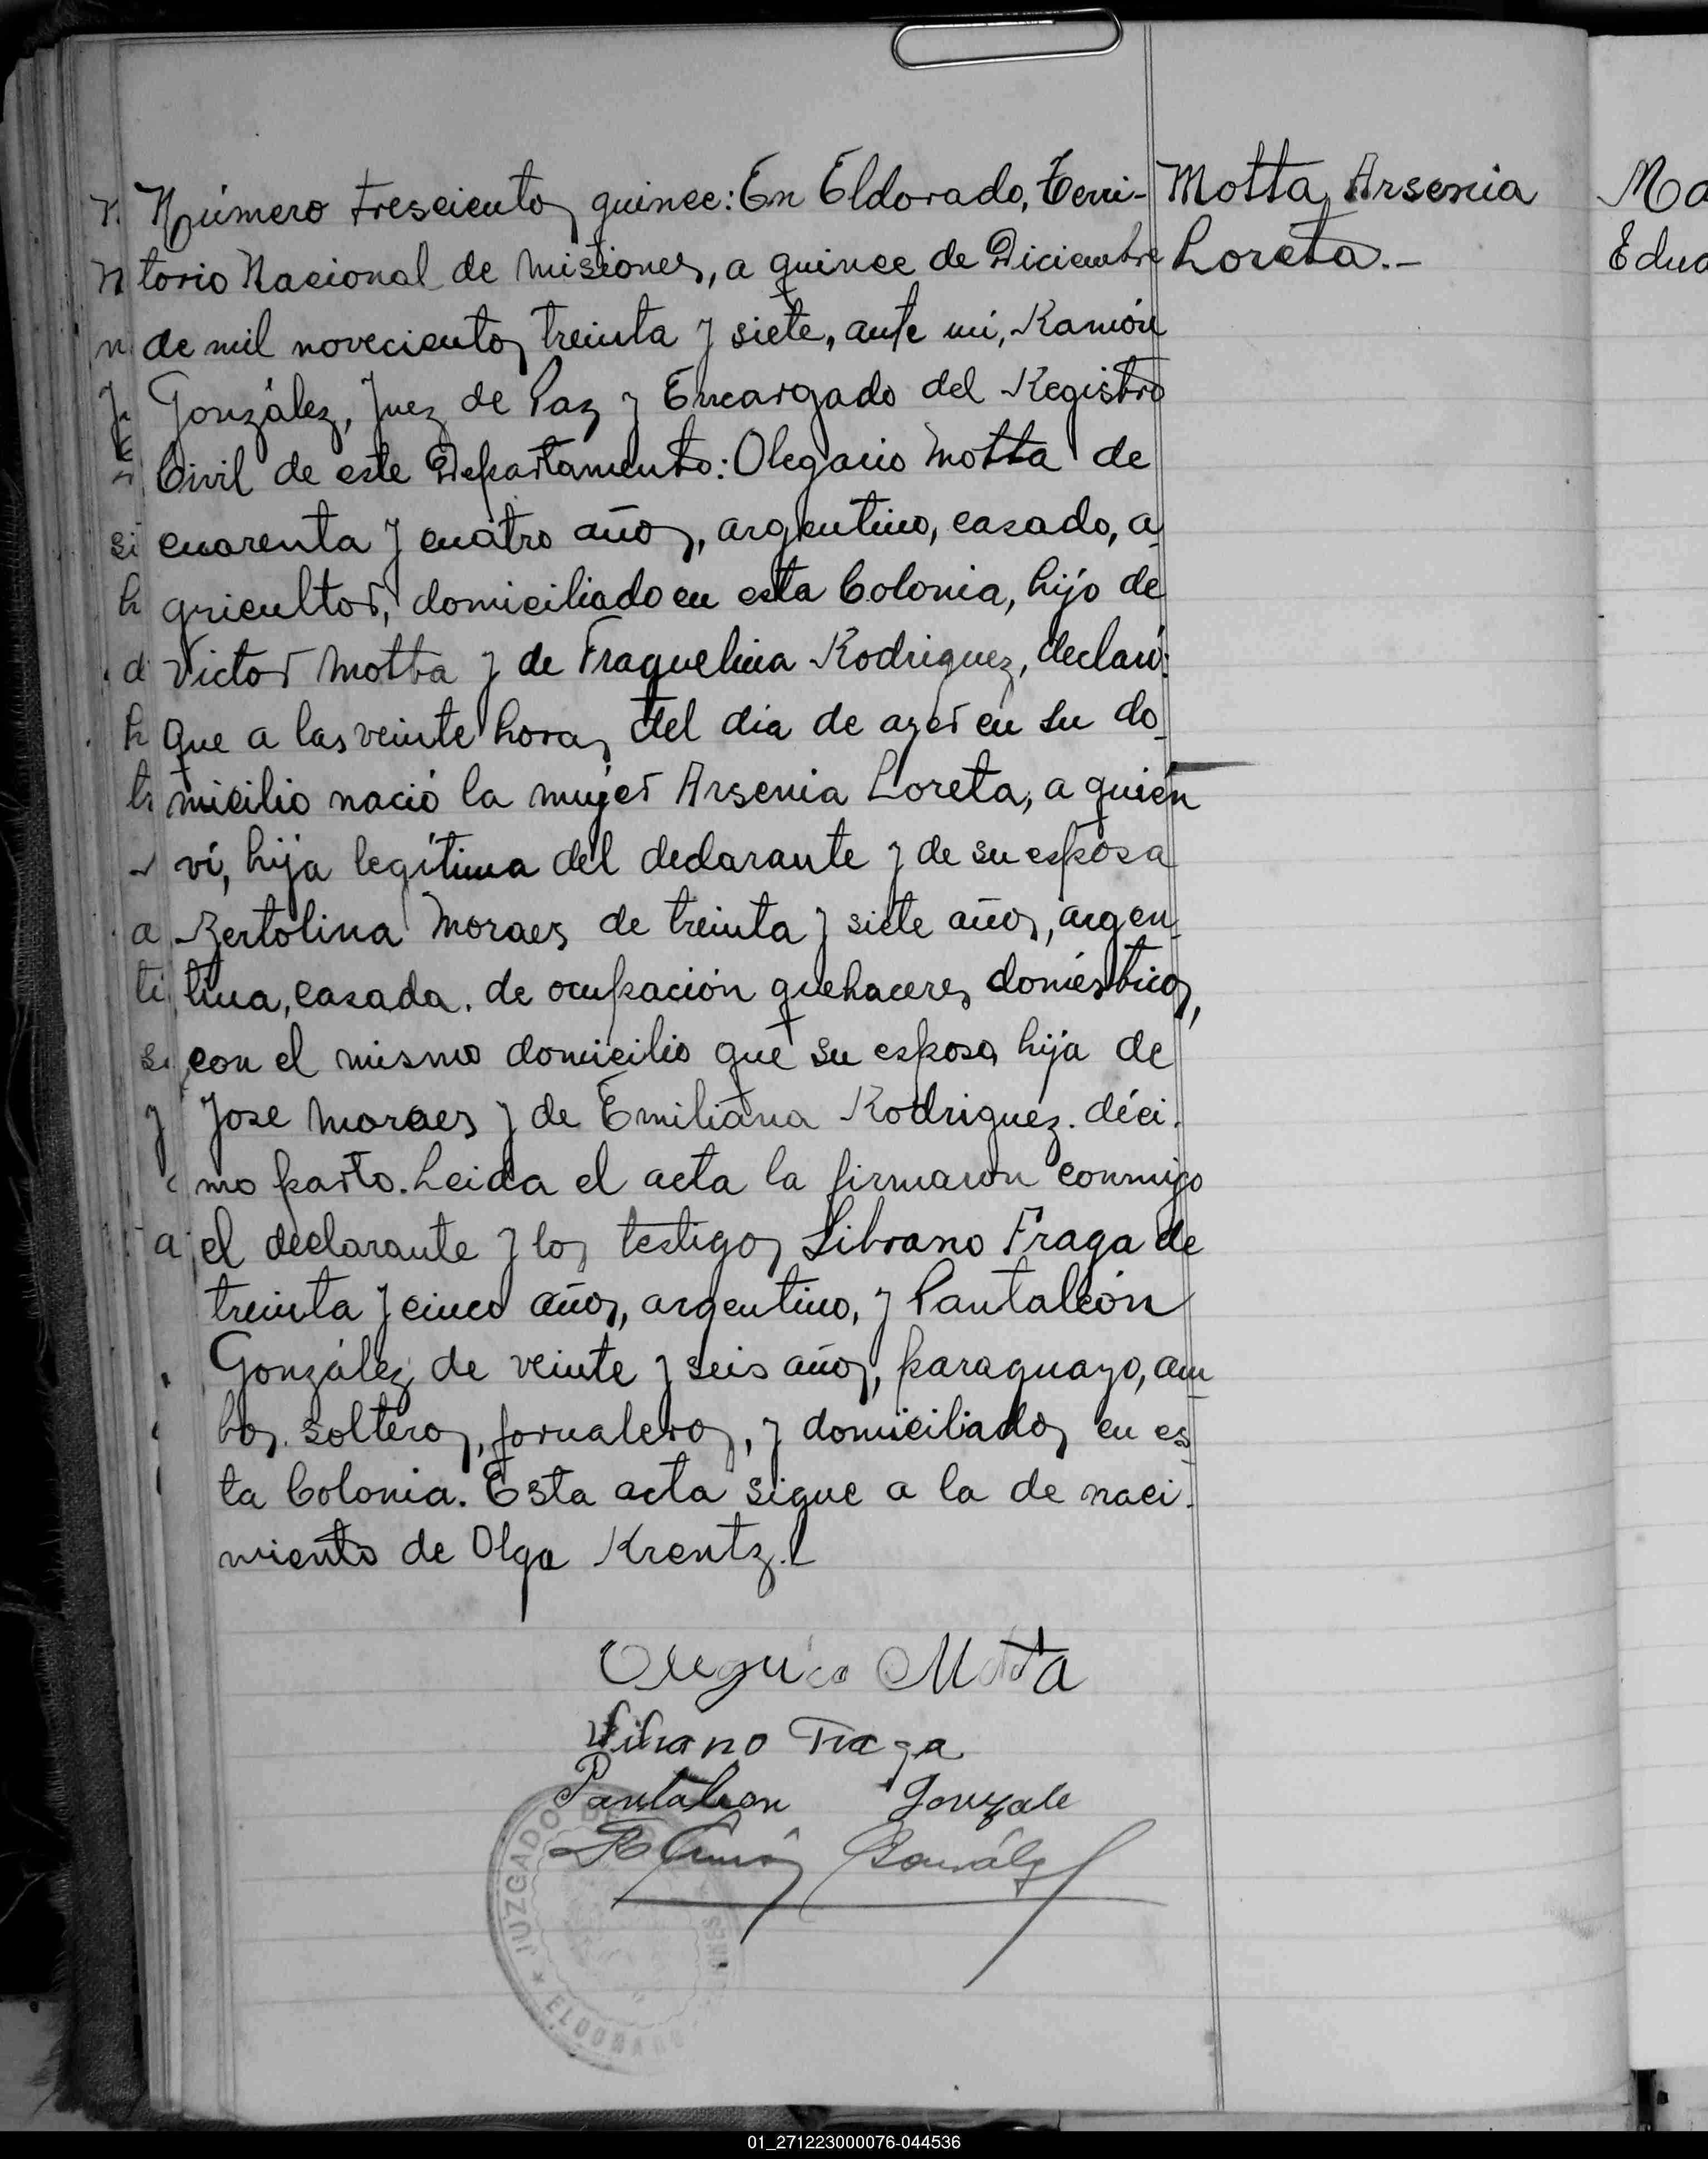 Número trescientos quince: En Eldorado, Terri-
torio Nacional de Misiones, a quince de Diciembre
de mil novecientos treinta y siete, ante mí, Ramón
González, Juez de Paz y Encargado del Registro
Civil de este Departamento: Olegario Motta de
cuarenta y cuatro años, argentino, casado, a
gricultor, domiciliado en esta Colonia, hijo de
Victor Motta y de Fraquelina Rodriguez, declaró:
Que a las veinte horas del dia de ayer en su do
micilio nació la mujer Arsenia Loreta, a quién
ví, hija legítima del declarante y de su esposa
Bertolina Moraes de treinta y siete años, argen
tina, casada. de ocupación quehaceres domésticos,
con el mismo domicilio que su esposo, hija de
Jose Moraes y de Emiliana Rodriguez. déci-
mo parto. Leida el acta la firmaron conmigo
el declarante y los testigos Librano Fraga de
treinta y cinco años, argentino, y Pantaleón
González de veinte y seis años, paraguayo, am
bos solteros, jornaleros, y domiciliados en es
ta Colonia. Esta acta sigue a la de naci-
miento de Olga Krentz.-
Motta, Arsenia
Loreta.-
Ma
Edua
Motta
Fraga
Pantaleon Gonzale
Ramón González
JUZGADO DE
ELDORADO
01_271223000076-044536